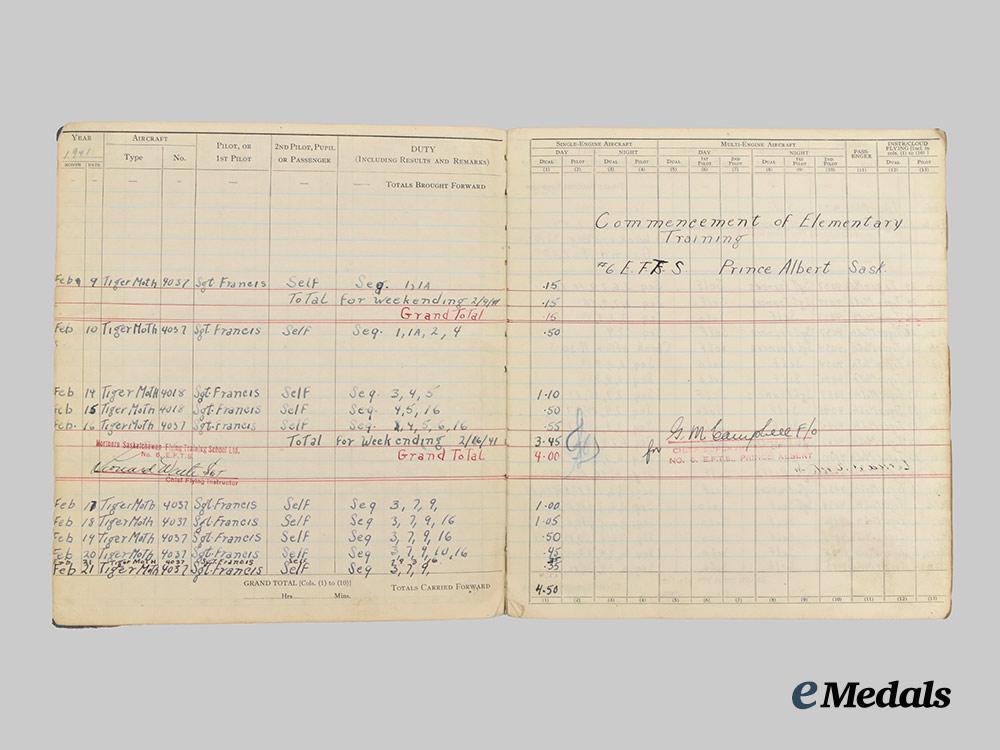 YEAR AIRCRAFT PILOT, OR 1ST PILOT 2ND PILOT, PUPIL OR PASSENGER DUTY (INCLUDING RESULTS AND REMARKS)
1941 Type No.
MONTH DATE
— — — — — TOTALS BROUGHT FORWARD
Feb 9 Tiger Moth 4037 Sgt Francis Self Seq. 1,1A
Total for weekending 2/9/41
Grand Total
Feb 10 Tiger Moth 4037 Sgt. Francis Self Seq. 1, 1A, 2, 4
Feb 14 Tiger Moth 4018 Sgt. Francis Self Seq 3, 4, 5
Feb 15 Tiger Moth 4018 Sgt. Francis Self Seq. 4, 5, 16
Feb. 16 Tiger Moth 4037 Sgt. Francis Self Seq. 4, 5, 6, 16
Total for Week ending 2/16/41
Grand Total
Northern Saskatchewan Flying Training School Ltd.
No. 6, E.F.T.S.
Chief Flying Instructor
Feb 17 Tiger Moth 4037 Sgt. Francis Self Seq 3, 7, 9,
Feb 18 Tiger Moth 4037 Sgt. Francis Self Seq 3, 7, 9, 16
Feb 19 Tiger Moth 4037 Sgt. Francis Self Seq 3, 7, 9, 16
Feb 20 Tiger Moth 4037 Sgt. Francis Self Seq 3, 7, 9, 10, 16
Tiger Moth 4037 Sgt. Francis
Feb 21 Tiger Moth 4037 Sgt. Francis Self Seq 3, 7, 9,
GRAND TOTAL [Cols. (1) to (10)] TOTALS CARRIED FORWARD
Hrs. Mins.
SINGLE-ENGINE AIRCRAFT MULTI-ENGINE AIRCRAFT PASSENGER INSTR/CLOUD FLYING [Incl. in cols. (1) to (10)]
DAY NIGHT DAY NIGHT
DUAL PILOT DUAL PILOT DUAL 1ST PILOT 2ND PILOT DUAL 1ST PILOT 2ND PILOT DUAL PILOT
(1) (2) (3) (4) (5) (6) (7) (8) (9) (10) (11) (12) (13)
Commencement of Elementary
Training
#6 E.F.T.S. Prince Albert Sask.
.15
.15
.15
.50
1.10
.50
.55
3.45
4.00
for G. M. Campbell F/O
NO. 6, E.F.T.S., PRINCE ALBERT
1.00
1.05
.50
.45
.35
4.50
(1) (2) (3) (4) (5) (6) (7) (8) (9) (10) (11) (12) (13)
eMedals